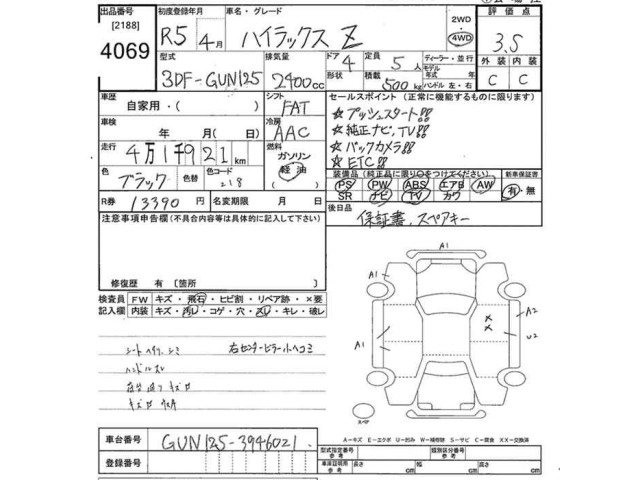 出品番号 初度登録年月 車名・グレード 2WD 評価点
[2188] R5年4月 ハイラックス Z 4WD 3.5
4069
型式 排気量 ドア 4 定員 5人 ディーラー・並行 外装 内装
3DF-GUN125 2400cc 形状 積載 500kg モデル年式 年 ハンドル 左・右 C C
車歴 自家用・( ) シフト FAT セールスポイント(正常に機能するものに限ります)
車検 年 月(日) 冷房 AAC ☆プッシュスタート!!
☆純正ナビ,TV!!
走行 4万1千921km 燃料 ガソリン 軽油 ☆バックカメラ!!
☆ETC!!
色 ブラック 色替 色コード 218 装備品(純正品に限り○をつけてください) 新車保証書
PS PW ABS エアB AW 有・無
SR ナビ TV カワ
R券 13390円 名変期限 月 日 後日品 保証書、スペアキー
注意事項申告欄(不具合内容等は具体的に記入して下さい)
修復歴 有〔箇所 〕
検査員記入欄 FW キズ・飛石・ヒビ割・リペア跡・×要
内装 キズ・汚レ・コゲ・穴・スレ・キレ・破レ
シートヘイリ シミ 右センターピラー小ヘコミ
ハンドルスレ
A1
A1
A2
A1
U2
A1
スペア
車台番号 GUN125-3946021
登録番号
A-キズ E-エクボ U-凹み W-補修跡 S-サビ C-腐食 XX-交換済
型式指定番号 参考 類別区分番号 参考
車庫証明用 参考 長さ cm 幅 cm 高さ cm